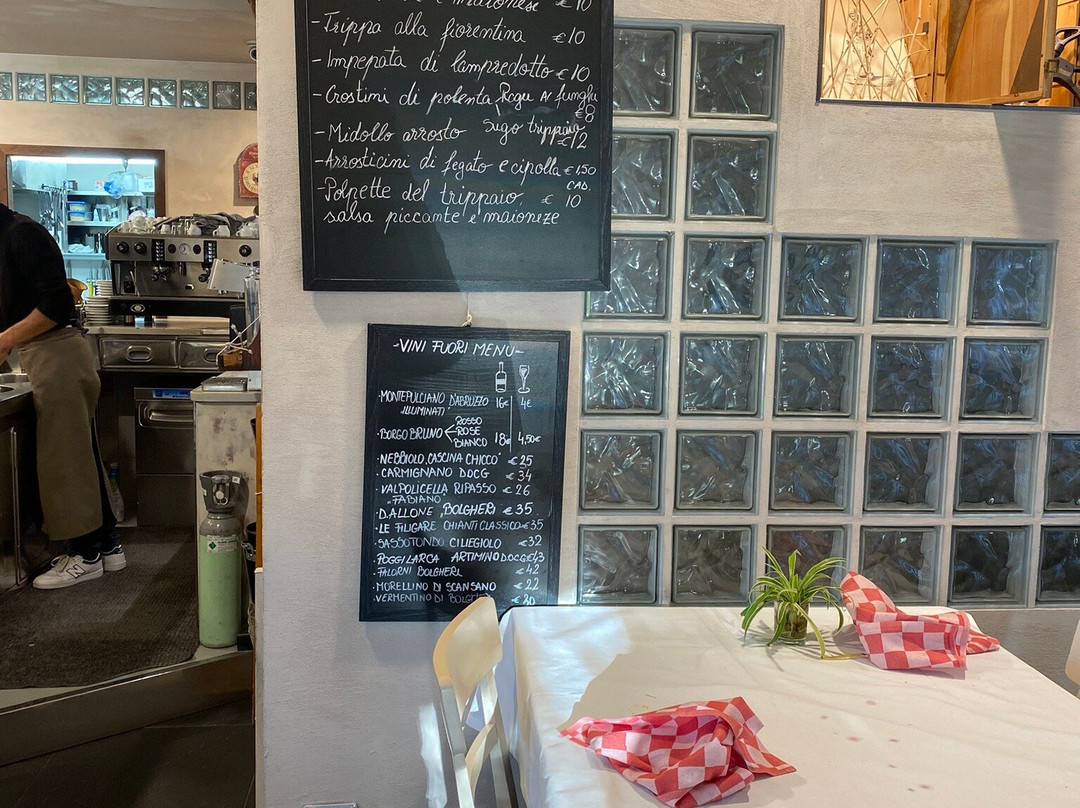 e maionese €10
-Trippa alla fiorentina €10
-Impepata di lampredotto €10
-Crostini di polenta, Ragu Ai funghi €8
-Midollo arrosto Sugo trippaio €12
-Arrosticini di fegato e cipolla €1,50 CAD.
-Polpette del trippaio, € 10
salsa piccante e maioneze
-VINI FUORI MENU-
·MONTEPULCIANO D'ABRUZZO 16€ 4€
ILLUMINATI
·BORGO BRUNO ROSSO ROSE BIANCO 18€ 4,50€
·NEBBIOLO, CASCINA CHICCO € 25
·CARMIGNANO DOCG € 34
·VALPOLICELLA RIPASSO € 26
-FABIANO
·D.ALLONE BOLGHERI € 35
·LE FILIGARE CHIANTI CLASSICO €35
·SASSOTONDO CILIEGIOLO €32
·POGGILARCA ARTIMINO DOCG €43
·FALORNI BOLGHERI €42
·MORELLINO DI SCANSANO €22
·VERMENTINO DI BOLGHERI €30
N